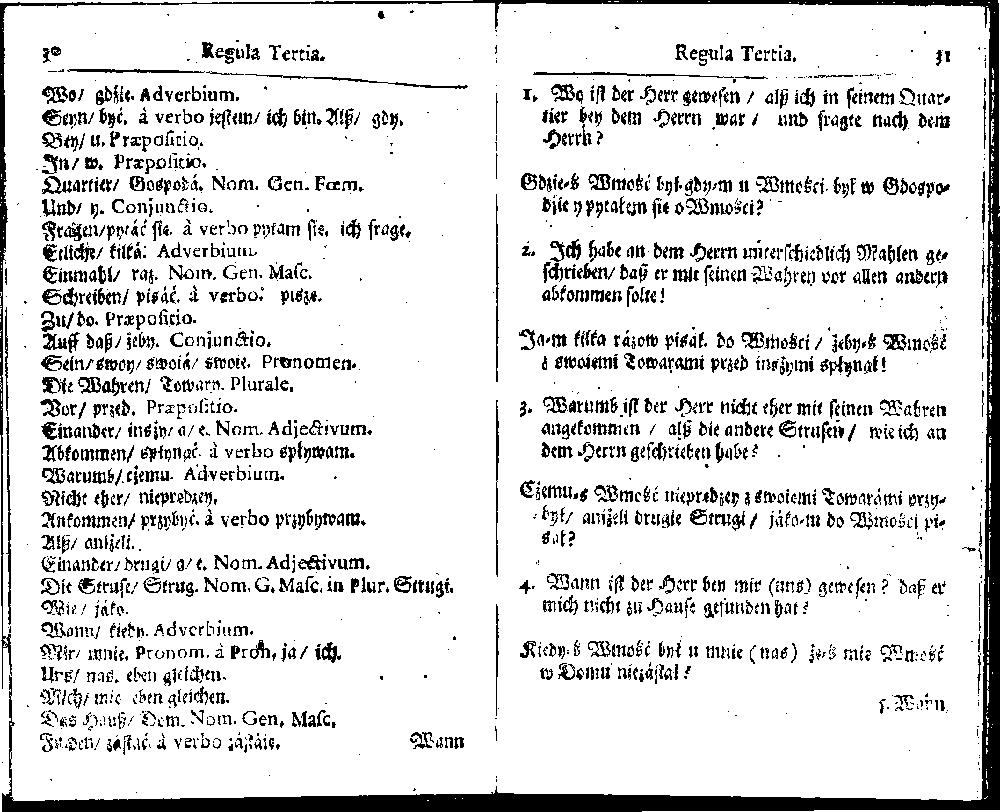 30 Regula Tertia.
Wo/ gdzie. Adverbium.
Seyn/ być. à verbo jestem/ ich bin. Alß/ gdy.
Bey/ u. Præpositio.
In/ w. Præpositio.
Quartier/ Gospodá. Nom. Gen. Fœm.
Und/ y. Conjunctio.
Fragen/ pytáć się. à verbo pytam się, ich frage.
Etliche/ kilká. Adverbium.
Einmahl/ raz. Nom. Gen. Masc.
Schreiben/ pisáć. à verbo. pisze.
Zu/ do. Præpositio.
Auff daß/ żeby. Conjunctio.
Sein/ swoy/ swoiá/ swoie. Pronomen.
Die Wahren/ Towary. Plurale.
Vor/ przed. Præpositio.
Einander/ inszy/ a/ e. Nom. Adjectivum.
Abkommen/ spłynąć. à verbo spływam.
Warumb/ czemu. Adverbium.
Nicht eher/ nieprędzey.
Ankommen/ przybyć. à verbo przybywam.
Alß/ aniżeli.
Einander/ drugi/ a/ e. Nom. Adjectivum.
Die Struse/ Strug. Nom. G. Masc. in Plur. Strugi.
Wie/ jáko.
Wann/ kiedy. Adverbium.
Mir/ mnie. Pronom. à Pron. ja/ ich.
Uns/ nas. eben gleichen.
Mich/ mie eben gleichen.
Das Hauß/ Dom. Nom. Gen. Masc.
Finden/ zástać. à verbo zástáię.
Wann
Regula Tertia. 31
1. Wo ist der Herr gewesen / alß ich in seinem Quar-
tier bey dem Herrn war / und fragte nach dem
Herrn?
Gdzie-ś Wmość był gdy-m u Wmości był w Gospo-
dzie y pytałem się o Wmości?
2. Ich habe an dem Herrn unterschiedlich Mahlen ge-
schrieben/ daß er mit seinen Wahren vor allen andern
abkommen solte!
Ja-m kilka rázow pisał do Wmości / żeby-ś Wmość
z swoiemi Towarami przed inszymi spłynął!
3. Warumb ist der Herr nicht eher mit seinen Wahren
angekommen / alß die andere Strusen / wie ich an
dem Herrn geschrieben habe?
Czemu-ś Wmość nieprędzey z swoiemi Towarámi przy-
był/ aniżeli drugie Strugi / jáko-m do Wmości pi-
sał?
4. Wann ist der Herr bey mir (uns) gewesen? daß er
mich nicht zu Hause gefunden hat?
Kiedy-ś Wmość był u mnie (nas) że-ś mie Wmość
w Domu niezástał?
5. Wann